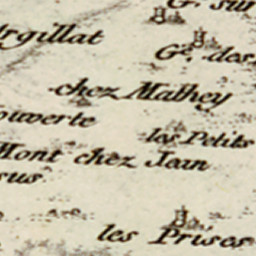 G. sur
Argillat
Ge. des
chez Mathey
ouverte
les Petits
Mont chez Jean
sus
les Prises